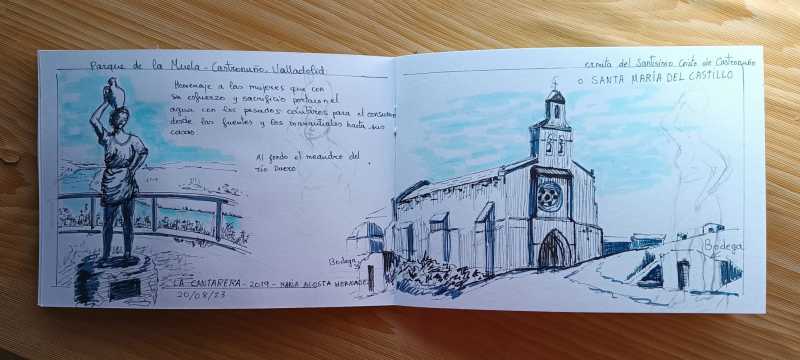 Parque de la Muela - Castronuño - Valladolid.
Homenaje a las mujeres que con
su esfuerzo y sacrificio portaron el
agua con los pesados cántaros para el consumo
desde las fuentes y los manantiales hasta sus
casas.
Al fondo el meandro del
río Duero.
Bodega
LA CANTARERA - 2019 - MARÍA ACOSTA HERNÁDEZ
20/08/23
ermita del Santísimo Cristo de Castronuño
o SANTA MARÍA DEL CASTILLO
Bodega